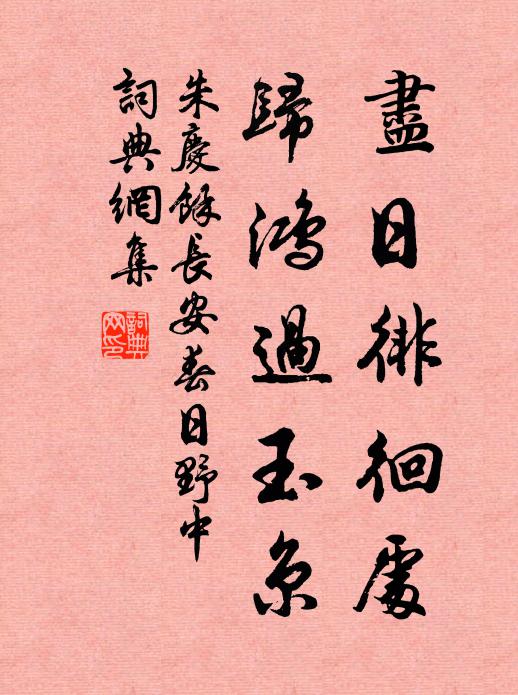 盡日徘徊處
歸鴻過玉京
朱慶餘長安春日野中
詞典網集
詞典網印